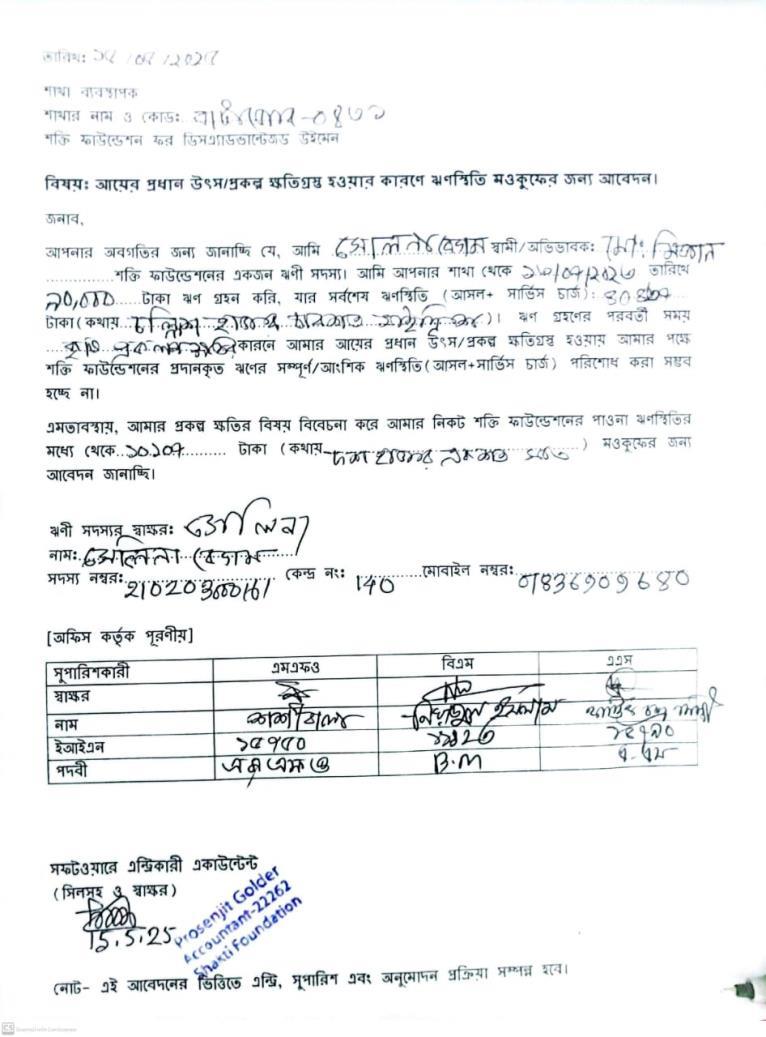 তারিখ: ১৫/০৫/২০২৫
শাখা ব্যবস্থাপক
শাখার নাম ও কোড:
শক্তি ফাউন্ডেশন ফর ডিসএ্যাডভান্টেজড উইমেন
বিষয়: আয়ের প্রধান উৎস/প্রকল্প ক্ষতিগ্রস্থ হওয়ার কারণে ঋণস্থিতি মওকুফের জন্য আবেদন।
জনাব,
আপনার অবগতির জন্য জানাচ্ছি যে, আমি সেলিনা বেগম স্বামী/অভিভাবক: মো:
শক্তি ফাউন্ডেশনের একজন ঋণী সদস্য। আমি আপনার শাখা থেকে তারিখে
টাকা ঋণ গ্রহন করি, যার সর্বশেষ ঋণস্থিতি (আসল+ সার্ভিস চার্জ):
টাকা (কথায় চল্লিশ হাজার চারশত )। ঋণ গ্রহণের পরবর্তী সময়
কারনে আমার আয়ের প্রধান উৎস/প্রকল্প ক্ষতিগ্রস্থ হওয়ায় আমার পক্ষে
শক্তি ফাউন্ডেশনের প্রদানকৃত ঋণের সম্পূর্ণ/আংশিক ঋণস্থিতি (আসল+সার্ভিস চার্জ) পরিশোধ করা সম্ভব
হচ্ছে না।
এমতাবস্থায়, আমার প্রকল্প ক্ষতির বিষয় বিবেচনা করে আমার নিকট শক্তি ফাউন্ডেশনের পাওনা ঋণস্থিতির
মধ্যে থেকে ১০,১০৭ টাকা (কথায় দশ হাজার একশত সাত) মওকুফের জন্য
আবেদন জানাচ্ছি।
ঋণী সদস্যর স্বাক্ষর: সেলিনা
নাম: সেলিনা বেগম
সদস্য নম্বর: কেন্দ্র নং: 140 মোবাইল নম্বর: 01836909680
[অফিস কর্তৃক পূরণীয়]
সুপারিশকারী এমএফও বিএম এএস
স্বাক্ষর
নাম ইসলাম
ইআইএন
পদবী এম এফ ও B.M এ.এস
সফটওয়ারে এন্ট্রিকারী একাউন্টেন্ট
(সিলসহ ও স্বাক্ষর)
15.5.25
Prosenjit Golder
Accountant-22262
Shakti Foundation
নোট- এই আবেদনের ভিত্তিতে এন্ট্রি, সুপারিশ এবং অনুমোদন প্রক্রিয়া সম্পন্ন হবে।